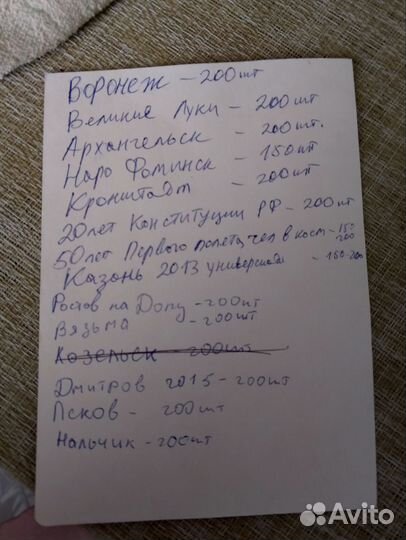 Воронеж - 200шт
Великие Луки - 200шт
Архангельск - 200шт.
Наро Фоминск - 150шт
Кронштадт - 200шт
20лет Конституции РФ - 200шт
50лет Первого полета чел в косм - 150 200
Казань 2013 универсиада - 150-200
Ростов на Дону - 200шт
Вязьма - 200шт
Козельск 200шт
Дмитров 2015 - 200шт
Псков - 200шт
Нальчик - 200шт
Avito